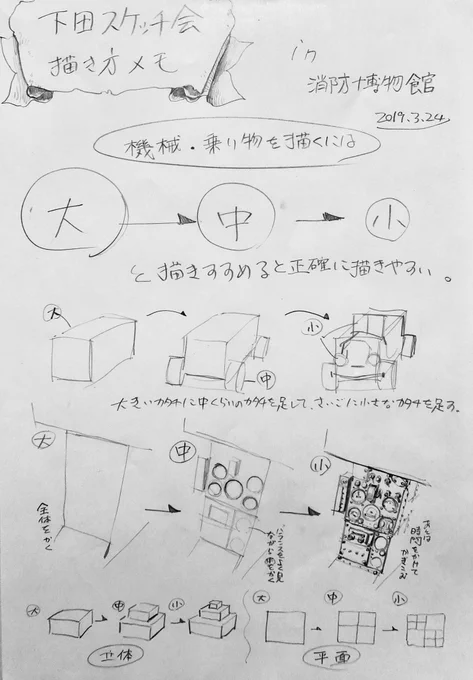 下田スケッチ会
描き方メモ
in
消防博物館
2019.3.24
機械・乗り物を描くには
大
中
小
と描きすすめると正確に描きやすい。
大
中
小
大きいカタチに中くらいのカタチを足して、さいごに小さなカタチを足す。
大
全体をかく
中
バランスをよく見
ながら中をかく
小
あとは
時間をかけて
かきこみ
大
中
小
立体
大
中
小
平面